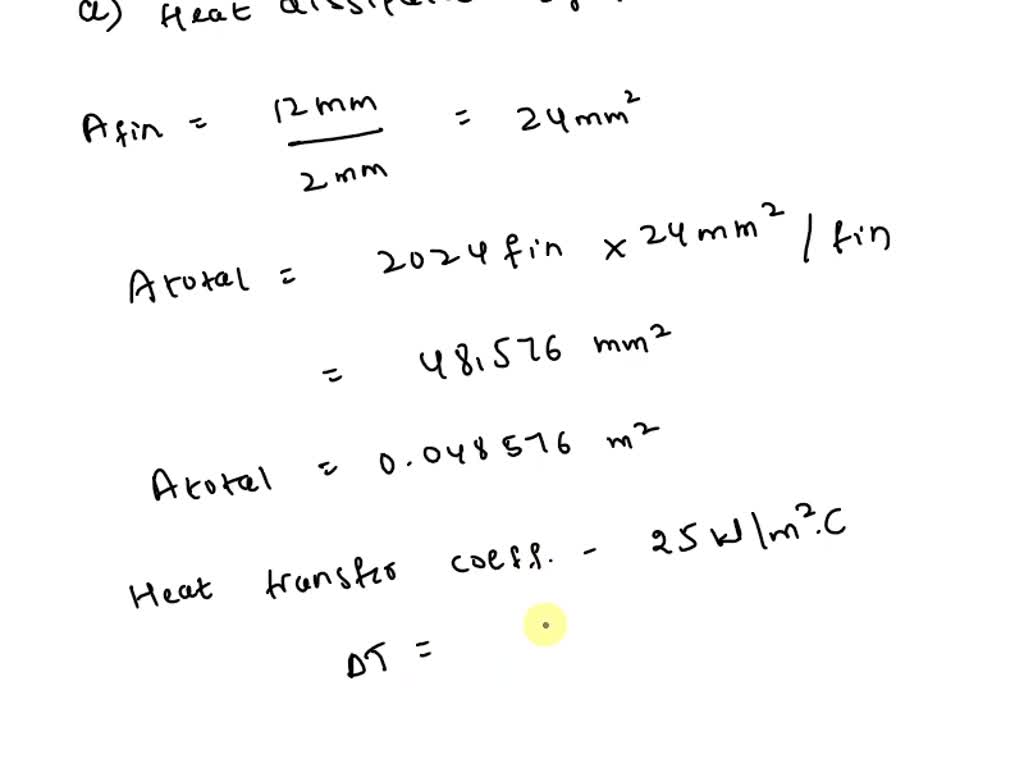 a) Heat
Afin = 12mm / 2mm = 24mm²
Atotal = 2024 fin × 24mm² / fin
= 48,576 mm²
Atotal = 0.048576 m²
Heat transfer coeff. - 25 W/m².C
ΔT =